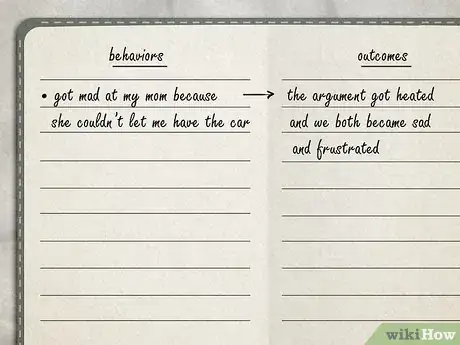 behaviors
• got mad at my mom because
she couldn't let me have the car
→
outcomes
the argument got heated
and we both became sad
and frustrated
wikiHow